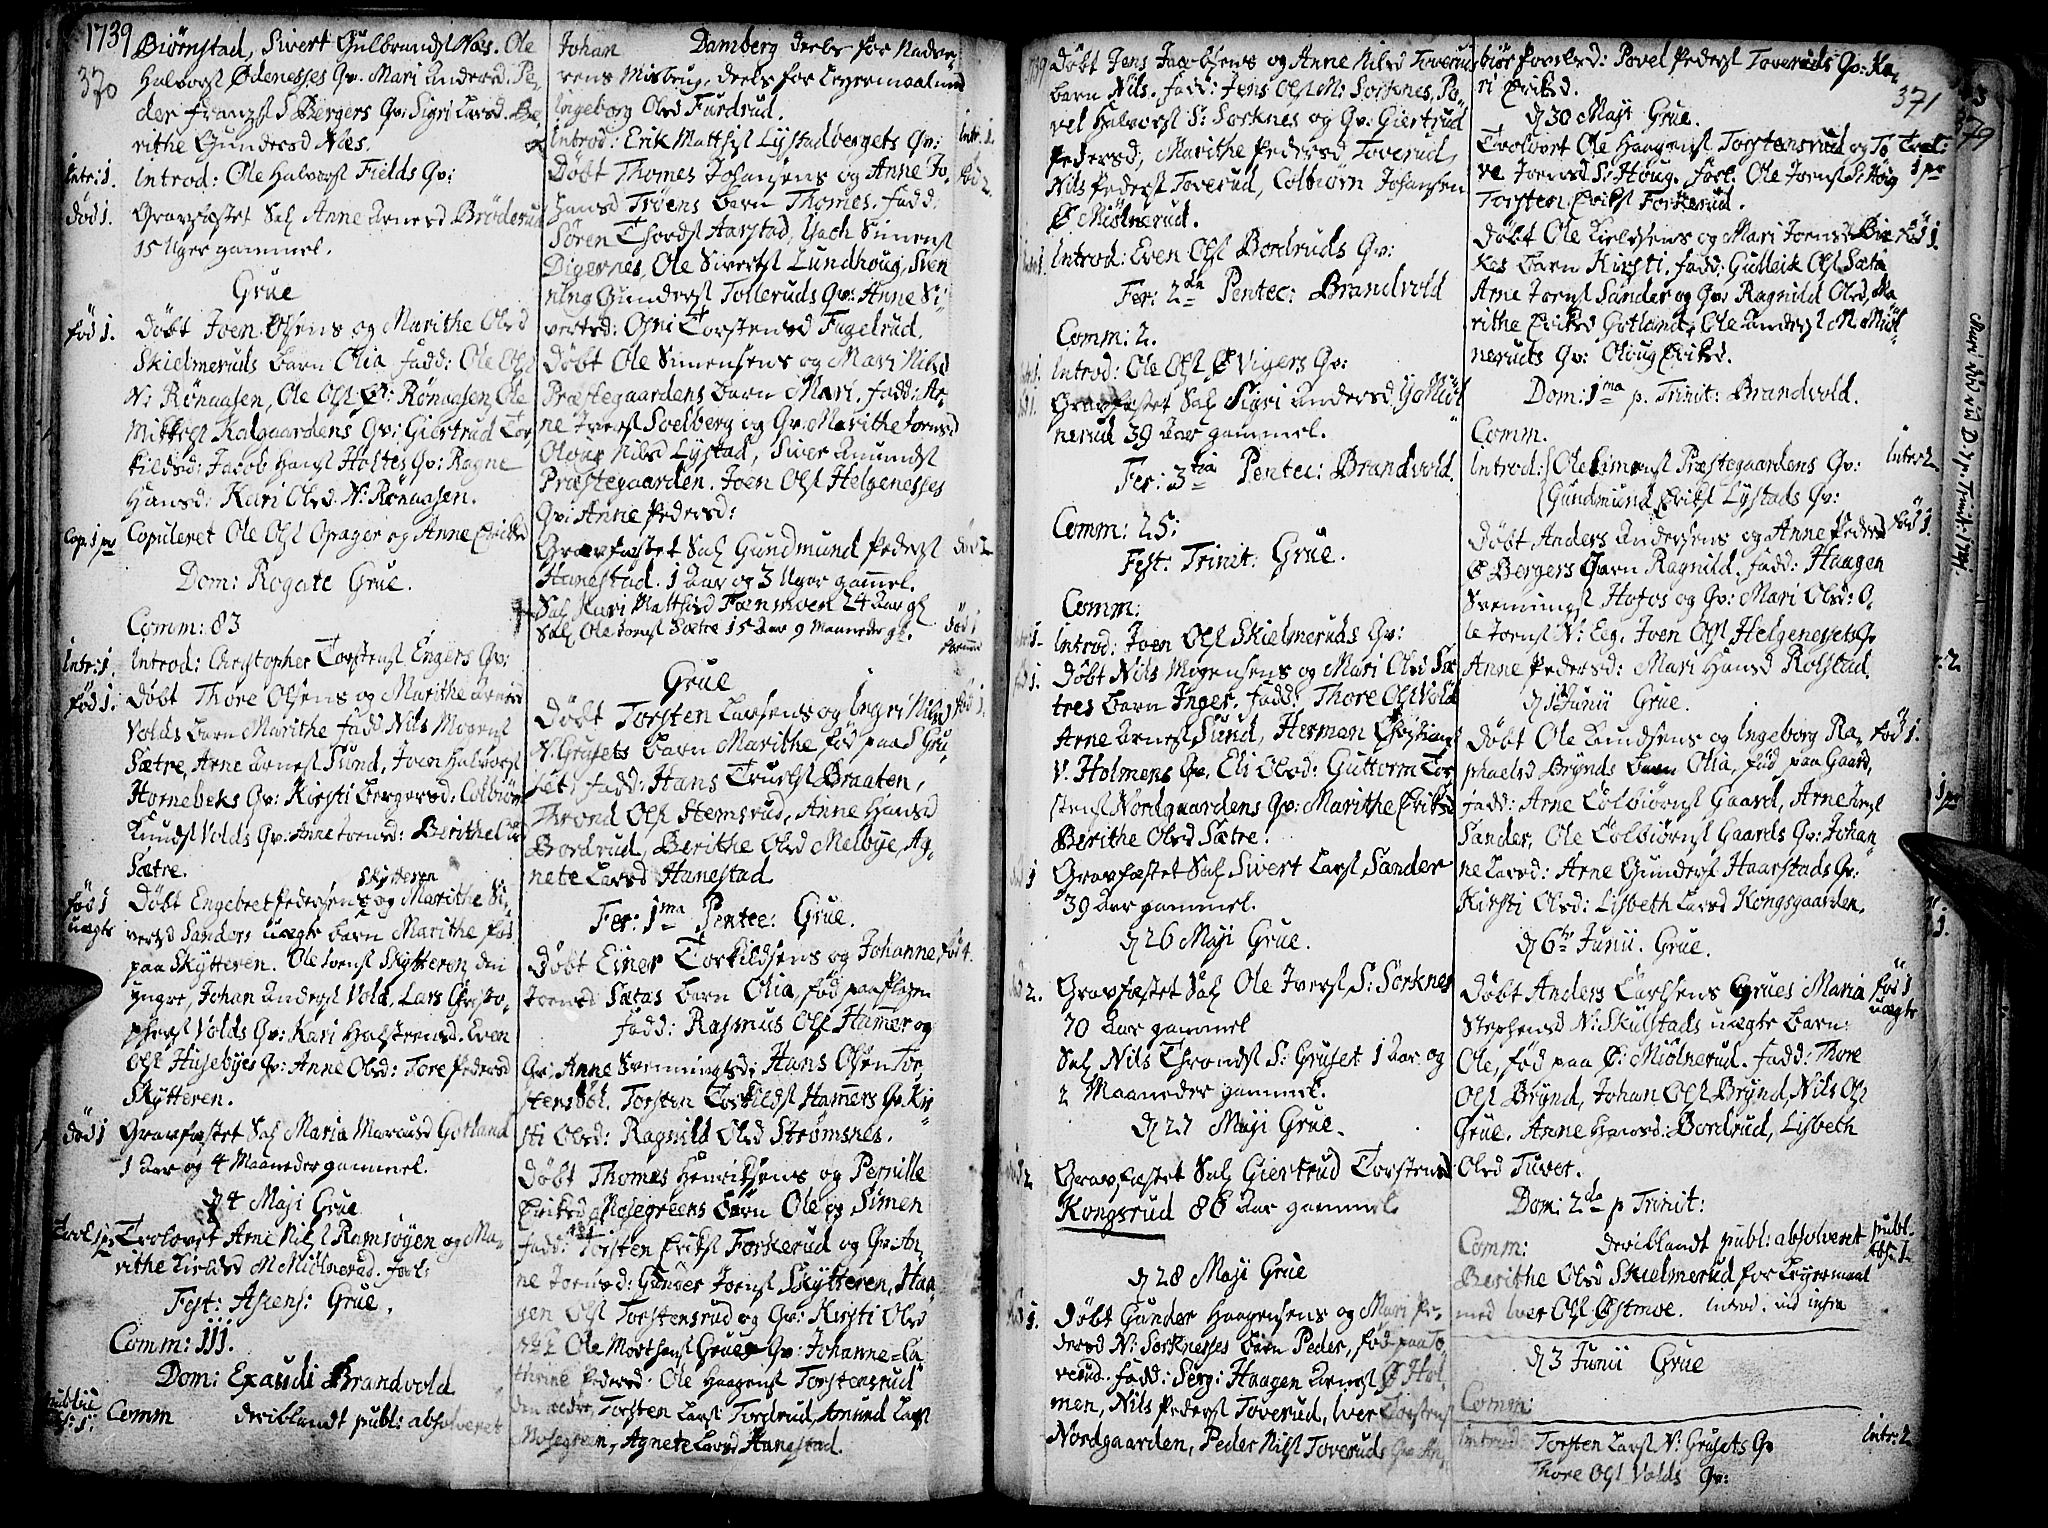 1739
370
Biørnstad, Sivert Gulbrands Næs. Ole
Halvors Ødenesses Qv. Mari Anders. Pe-
der Frantzs S Bergers Qv: Sigri Larsd. Be
rithe Gundersd Næs.
Intr: 1.
Introd: Ole Halvors Fields Qv:
død 1.
Gravfæstet Sal Anne Arnesd Brøderud
15 Uger gammel.
Grue
fød 1.
Døbt Joen Olsens og Marithe Olsd
Skielmeruds barn Olia. fadd: Ole Ols
N: Rønaasen, Ole Ols Ø: Rønaasen, Ole
Mikkels Kalgaardens Qv: Giertrud Tor
kildsd: Jacob Hans Holtes Qv: Ragne
Hansd: Kari Olsd N: Rønaasen.
Cop. 1 pr
Copuleret Ole Ols Opager og Anne Eriksd
Dom: Rogate Grue.
Comm: 83
Intr: 1.
Introd: Christopher Torstens Engers Qv:
fød 1.
Døbt Thore Olsens og Marithe Arnesd
Volds barn Marithe fadd Nils Mogens
Sætre, Arne Arnes Sund, Joen Halvors
Hornebeks Qv: Kirsti Bergersd: Colbiørn
Knuds Volds Qv: Anne Joensd: Berithe Olsd
Sætre.
Skytteren
fød 1
uægte
Døbt Engebret Pedersens og Marithe Si-
vertsd Sanders uægte barn Marithe fød
paa Skytteren. Ole Joens Skytteren den
yngre, Johan Anders Vold, Lars Christo-
phers Volds Qv: Kari Halstensd. Even
Ols Husebyes Qv: Anne Olsd: Tore Pedersd
Skytteren.
død 1
Gravfæstet Sal Maria Marcusd Gotland
1 Aar og 4 Maaneder gammel.
d 4 Maji Grue
Trol 1 pr
Trolovet Arne Nils Ramsøyen og Ma-
rithe Kieldsd M Miølnerud. forl:
Fest: Ascens: Grue.
Comm: 111.
Dom: Exaudi Brandvold
publice
Abs: 1:
Comm deriblandt publ: absolveret
Johan Damberg deels for Nadve-
rens Misbrug, deels for Leyermaal med
Ingeborg Olsd Furdrud.
Intr: 1.
Introd: Erik Matthis Lystadbergets Qv:
fød 2.
Døbt Thomes Johansens og Anne Jo-
hansd Trøens barn Thomes. fadd:
Søren Thords Aarstad, Isach Simens
Digernes, Ole Siverts Lundhoug, Sven
ning Gunders Tolleruds Qv: Anne Si-
vertsd: Osni Torstensd Fugelrud.
Døbt Ole Simensens og Mari Nilsd
Præstegaardens barn Mari. fadd: Ar-
ne Ivers Soelberg og Qv: Marithe Joensd
Oloug Nilsd Lystad, Siver Amunds
Præstegaarden. Joen Ols Helgenesses
Qv: Anne Pedersd:
død 2
Gravfæstet Sal Gundmund Peders
Hanestad. 1 Aar og 3 Uger gamel.
Sal Kari Mathisd Tænmoen 24 Aar gl
Sal Ole Joens Sætre 15 Aar 9 Maaneder gl.
død 1
Grue
fød 1.
Døbt Torsten Larsens og Ingri Nilsd
N. Grusets barn Marithe fød paa S Gru-
set; fadd: Hans Truls Braaten,
Thrond Ols Stemsrud, Anne Hansd
Bordrud, Berithe Olsd Melbye, Ag-
nete Larsd Hanestad
Fer: 1ma Pentec: Grue.
fød 4.
Døbt Einer Torkildsens og Johanne
Joensd Sætas barn Olia, fød paa Flisen
fadd: Rasmus Ols Hamer og
Qv: Anne Svenningsd: Hans Olsen Tor-
stensbøl. Torsten Torkilds Hamers Qv: Kir-
sti Olsd: Ragnild Olsd Strømsnes.
Døbt Thomes Henriksens og Pernille
Eriksd Mosegreens barn Ole og Simen
fadd: Torsten Eriks Forkerud og Qv: An
ne Joensd: Gunder Joens Skytteren, Haa
gen Ols Torstensrud og Qv: Kirsti Olsd
Ole Morthens Grues Qv: Johanne Ca
thrine Pedersd. Ole Haagens Torstensrud
den ældre, Torsten Lars Tordrud, Amund Lars
Mosegreen, Agnete Larsd Hanestad.
1739
Døbt Jens Jacobsens og Anne Nilsd Toverud
barn Nils. fadd: Jens Ols M: Sorknes, Po-
vel Halvors S: Sorknes og Qv: Giertrud
Pedersd, Marithe Pedersd Toverud,
Nils Peders Toverud, Colbiørn Johansen
Ø Miølnerud.
Introd: Even Ols Bordruds Qv:
Fer: 2da Pentec: Brandvold
Comm: 2.
Introd: Ole Ols Ø Vigers Qv:
Gravfæstet Sal Sigri Andersd Y: Miøl
nerud 39 Aar gammel.
Fer: 3tia Pentec: Brandvold.
Comm: 25:
Fest: Trinit: Grue.
Comm:
Introd: Joen Ols Skielmeruds Qv:
Døbt Nils Mogensens og Mari Olsd Sæ
tres barn Inger. fadd: Thore Ols Vold
Arne Arnes Sund, Herman Christians
V. Holmens Qv. Eli Olsd: Guttorm Tor
stens Nordgaardens Qv: Marithe Eriksd
Berithe Olsd Sætre.
Gravfæstet Sal Sivert Lars Sander
39 Aar gammel.
d 26 Maji Grue.
Gravfæstet Sal Ole Ivers S: Sorknes
70 Aar gammel
Sal Nils Thronds S: Gruset 1 Aar og
2 Maaneder gammel.
d 27 Maji Grue.
Gravfæstet Sal Giertrud Torstensd
Kongsrud 86 Aar gammel
d 28 Maji Grue
Døbt Gunder Haagensens og Mari Pe-
dersd N: Sorknesses barn Peder, fød paa To-
verud. fadd: Serg: Haagen Arnes Ø Hol-
men, Nils Peders Toverud, Iver Torstens
Nordgaarden, Peder Nils Toveruds Qv: An-
371
379
biør Povelsd: Povel Peders Toveruds Qv: Ka-
ri Eriksd.
d 30 Maji Grue.
Trol:
1 pr
Trolovet Ole Haagens Torstensrud og To
re Joensd S: Houg. forl. Ole Joens S: Houg
Torsten Eriks Forkerud.
fød 1.
Døbt Ole Kieldsens og Mari Joensd Bir
kes barn Kirsti. fadd: Gulleik Ols Sæta
Arne Joens Sander og Qv: Ragnild Olsd, Ma
rithe Eriksd Gotland, Ole Anders M Miøl
neruds Qv: Oloug Eriksd.
Dom: 1ma p. Trinit: Brandvold.
Comm.
Intr: 2.
Introd: Ole Simens Præstegaardens Qv:
Gundmund Eriks Lystads Qv:
fød 1.
Døbt Anders Andersens og Anne Pedersd
Ø Bergers barn Ragnild. fadd: Haagen
Svennings Hofos og Qv: Mari Olsd: O-
le Joens N: Eeg. Joen Ols Helgenessets Qv
Anne Pedersd: Mari Hansd Rolstad.
d 1 Junii Grue.
fød 1.
Døbt Ole Knudsens og Ingeborg Ra-
phaelsd Brynds barn Olia, fød paa Gaard,
fadd: Arne Colbiørns Gaard, Arne Joens
Sander, Ole Colbiørns Gaards Qv: Johan
ne Larsd: Arne Gunders Haarstads Qv:
Kirsti Olsd: Lisbeth Larsd Kongsgaarden.
d 6te Junii. Grue.
fød 1
uægte
Døbt Anders Carlsens Grues Maria
Stephensd N: Skulstads uægte barn:
Ole, fød paa Ø: Miølnerud. fadd: Thore
Ols Brynd, Johan Ols Brynd, Nils Ols
Grue. Anne Hansd: Bordrud, Lisbeth
Olsd Tuver.
Dom: 2da p Trinit:
publ.
Abs: 1.
Comm: deriblandt publ: absolveret
Berithe Olsd Skielmerud for Leyermaal
med Iver Ols Østmoe. Introd: vid infra
d 3 Junii Grue
Comm:
Intr: 2
Introd: Torsten Lars N: Grusets Qv
Thore Ols Volds Qv: